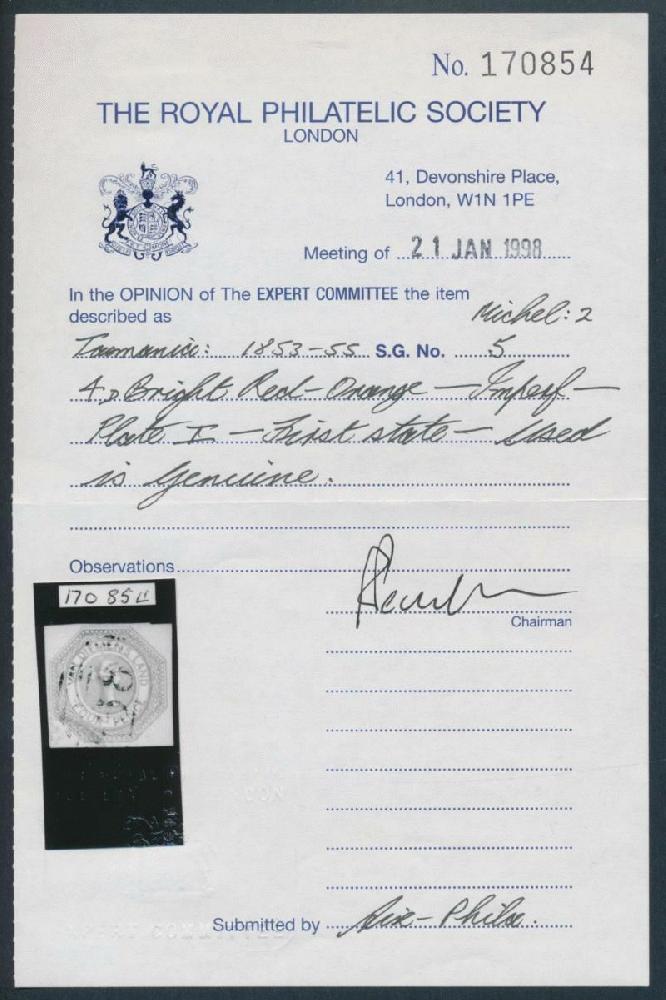 No. 170854
THE ROYAL PHILATELIC SOCIETY
LONDON
41, Devonshire Place,
London, W1N 1PE
Meeting of 21 JAN 1998
In the OPINION of The EXPERT COMMITTEE the item
described as
Michel: 2
Tasmania: 1853-55 S.G. No. 5
4d Bright Red-Orange - Imperf -
Plate I - First state - Used
is genuine.
Observations
Chairman
170854
LAND
Submitted by